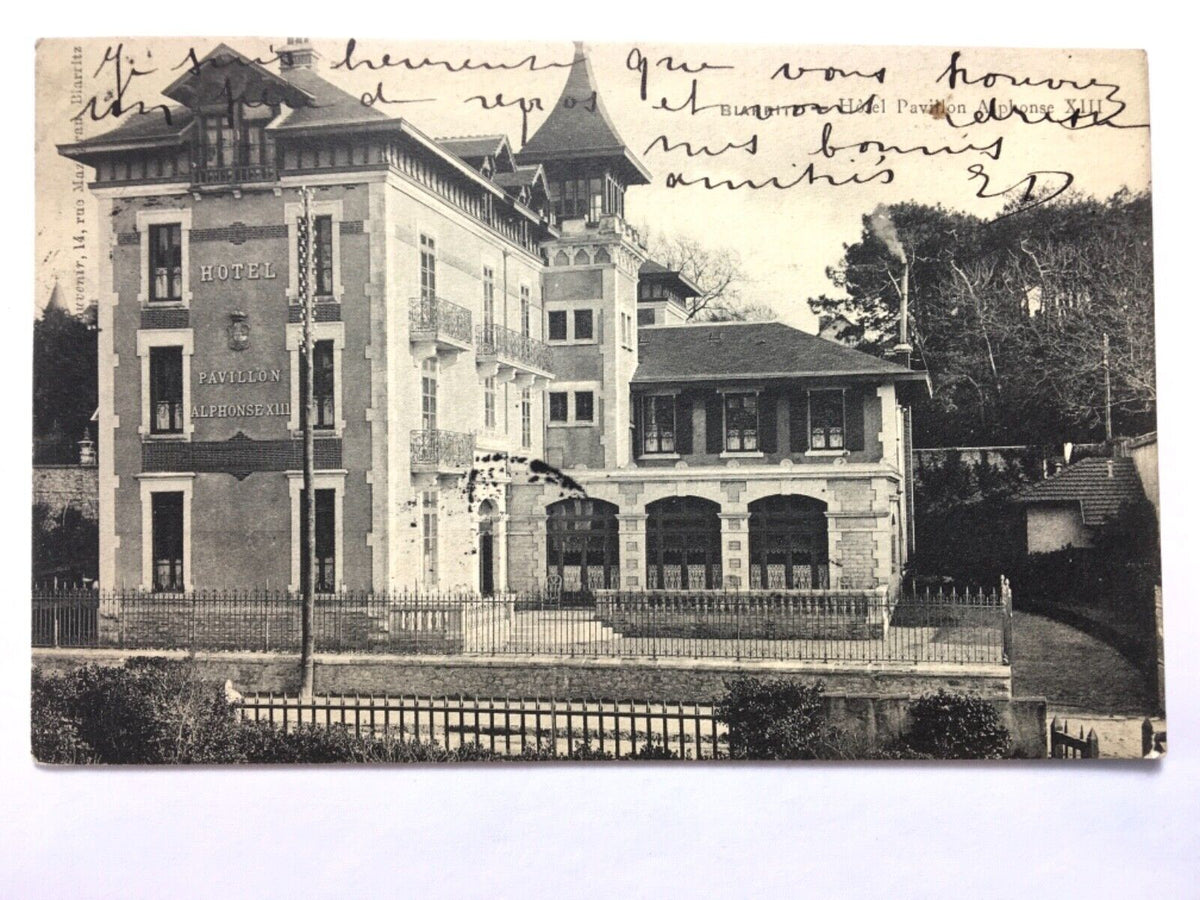 Je suis heureuse que vous trouvez
un peu de repos et vous
nos bonnes
amitiés ED
BIARRITZ - Hôtel Pavillon Alphonse XIII
HOTEL
PAVILLON
ALPHONSE XIII
uvenir, 14, rue Ma Biarritz